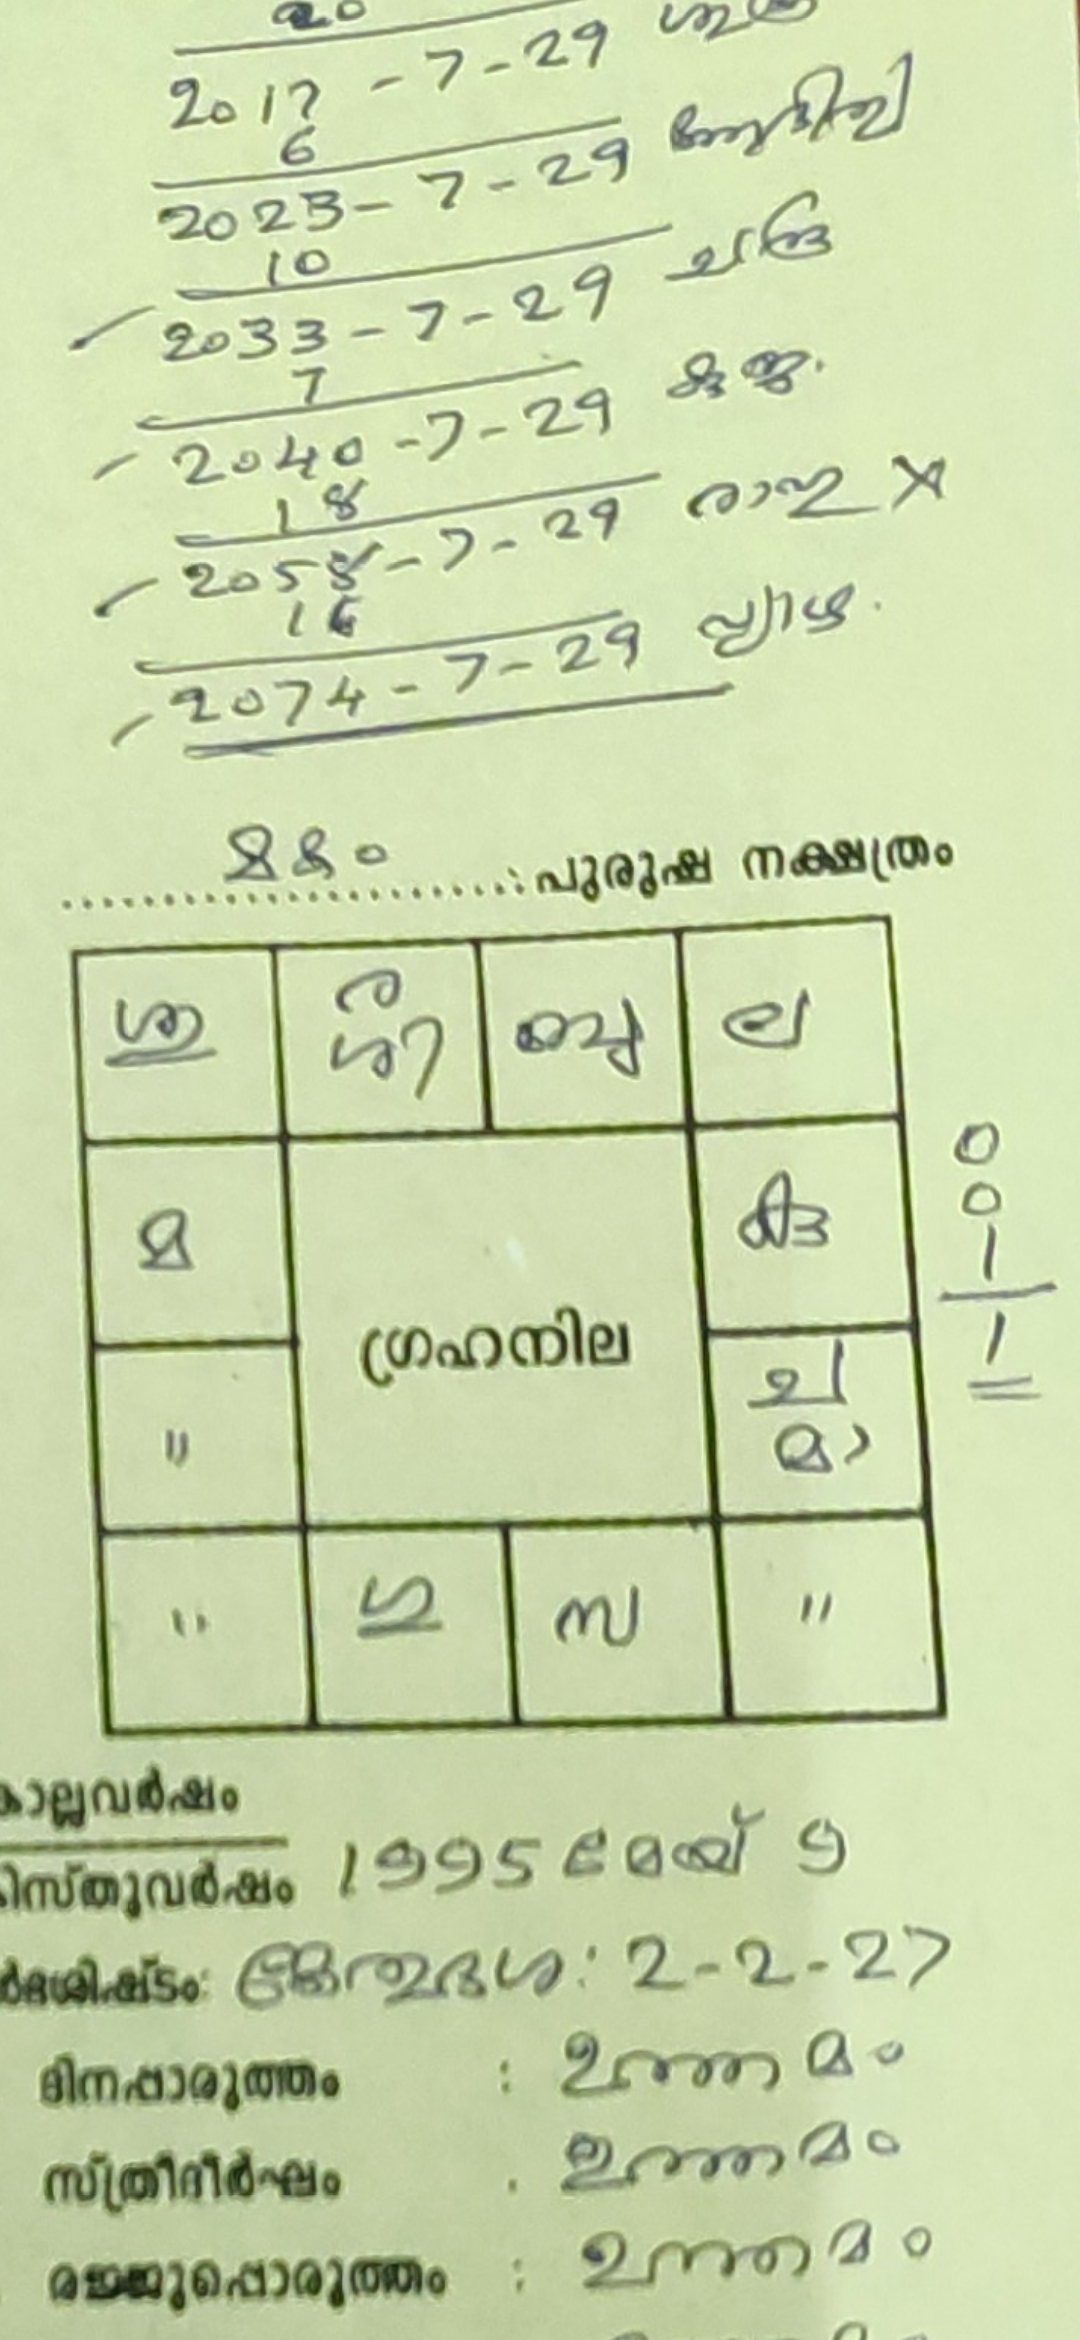 20
2017 - 7 - 29 ശുക്ര
6
2023 - 7 - 29
10
2033 - 7 - 29 ചന്ദ്ര
7
2040 - 7 - 29 കുജ.
18
2058 - 7 - 29 രാഹു X
16
2074 - 7 - 29 വ്യാഴ.
മകം :പുരുഷ നക്ഷത്രം
ശു ര ബു ല
ശി
മ 0
0
1
ഗ്രഹനില 1
" ച
മാ
" ഗു സ "
കൊല്ലവർഷം
ക്രിസ്തുവർഷം 1995 മെയ് 9
2-2-27
ദിനപ്പൊരുത്തം : ഉത്തമം
സ്ത്രീദീർഘം . ഉത്തമം
രജ്ജുപ്പൊരുത്തം : ഉത്തമം